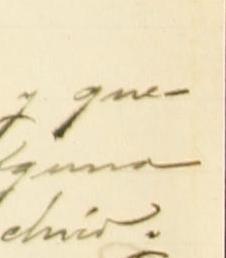 y que-
lguna
chivo.